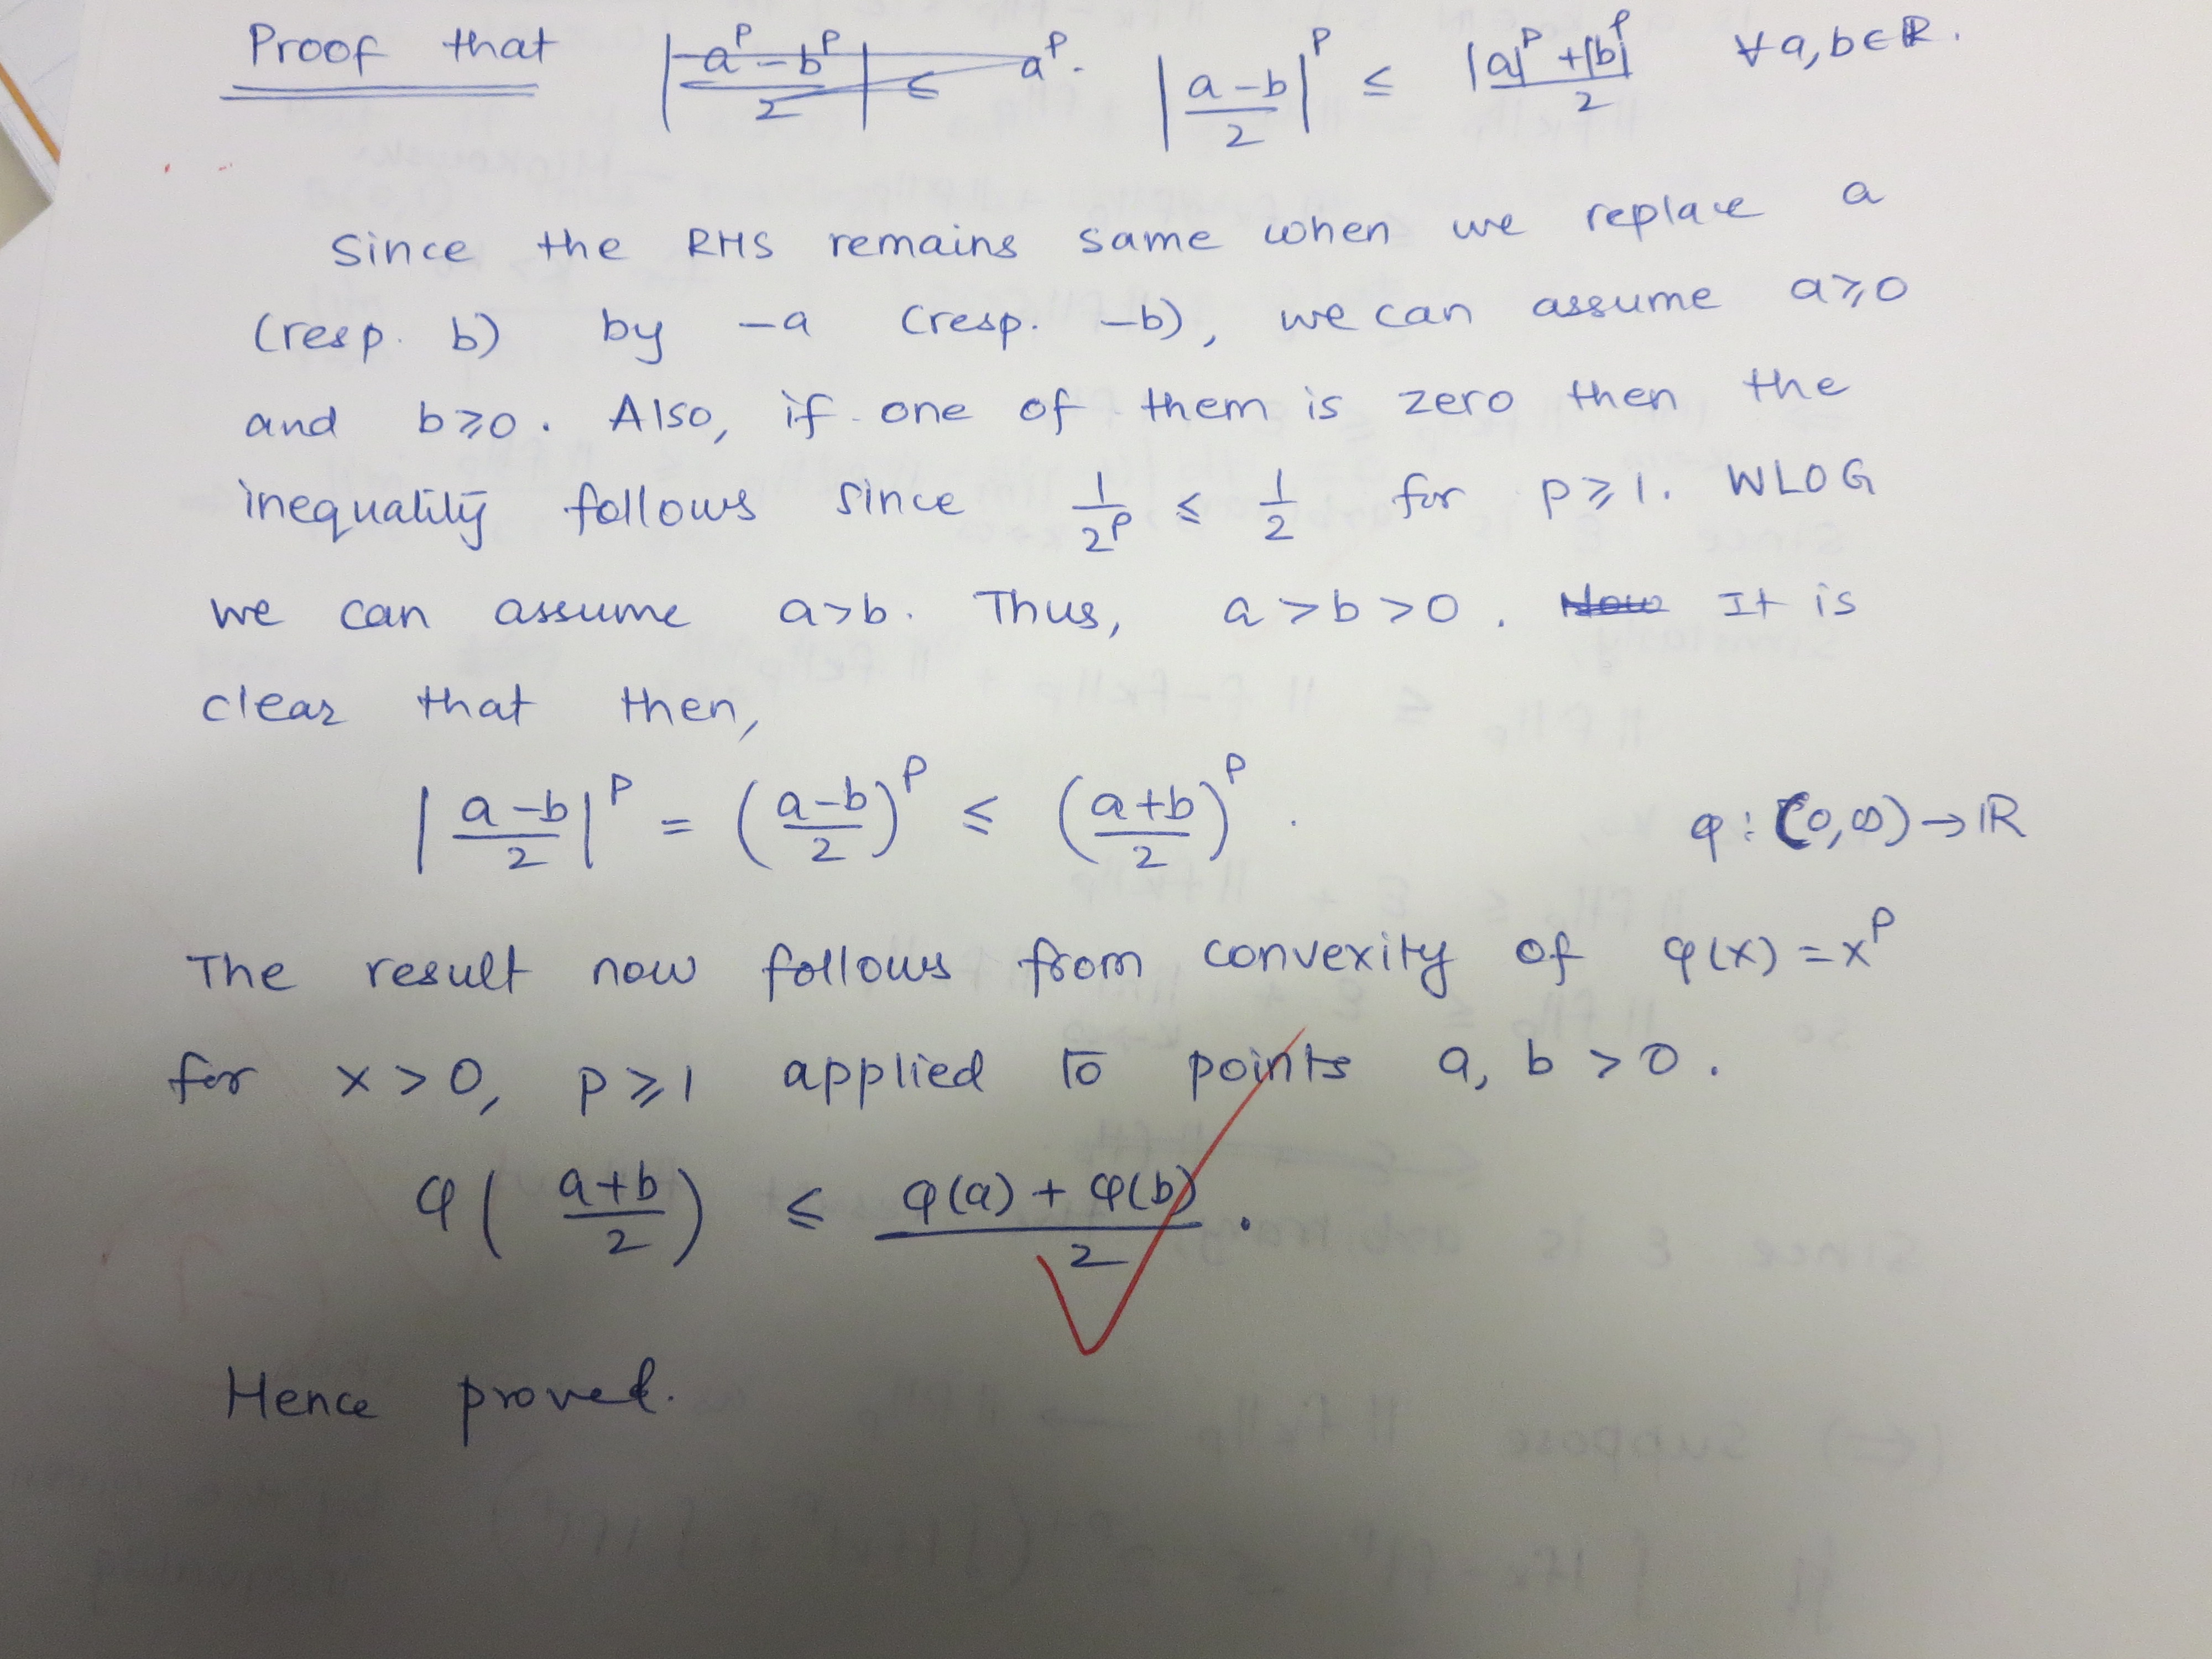 Proof that |a^p - b^p / 2| ≤ a^p. |a-b / 2|^p ≤ |a|^p + |b|^p / 2 ∀ a,b ∈ ℝ.
Since the RHS remains same when we replace a
(resp. b) by -a (resp. -b), we can assume a ⩾ 0
and b ⩾ 0. Also, if one of them is zero then the
inequality follows since 1/2^p ≤ 1/2 for p ⩾ 1. WLOG
we can assume a > b. Thus, a > b > 0. Now It is
clear that then,
|a-b / 2|^p = (a-b / 2)^p ≤ (a+b / 2)^p. φ : (0,∞) → ℝ
The result now follows from convexity of φ(x) = x^p
for x > 0, p ⩾ 1 applied to points a, b > 0.
φ(a+b / 2) ≤ φ(a) + φ(b) / 2.
Hence proved.